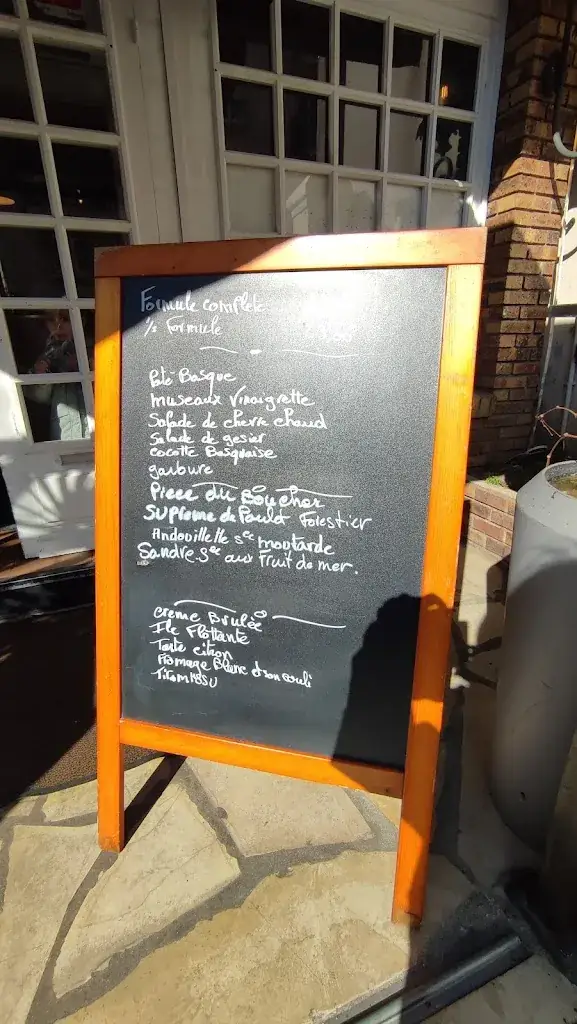 Formule complete
1/2 Formule
Paté Basque
museaux Vinaigrette
Salade de chevre chaud
Salade de gesier
cocotte Basquaise
garbure
Piece du Boucher
Supreme de Poulet Forestier
Andouillette sce moutarde
Sandre sce aux Fruit de mer.
creme Brulée
Ile Flottante
Tarte citron
Fromage Blanc et son couli